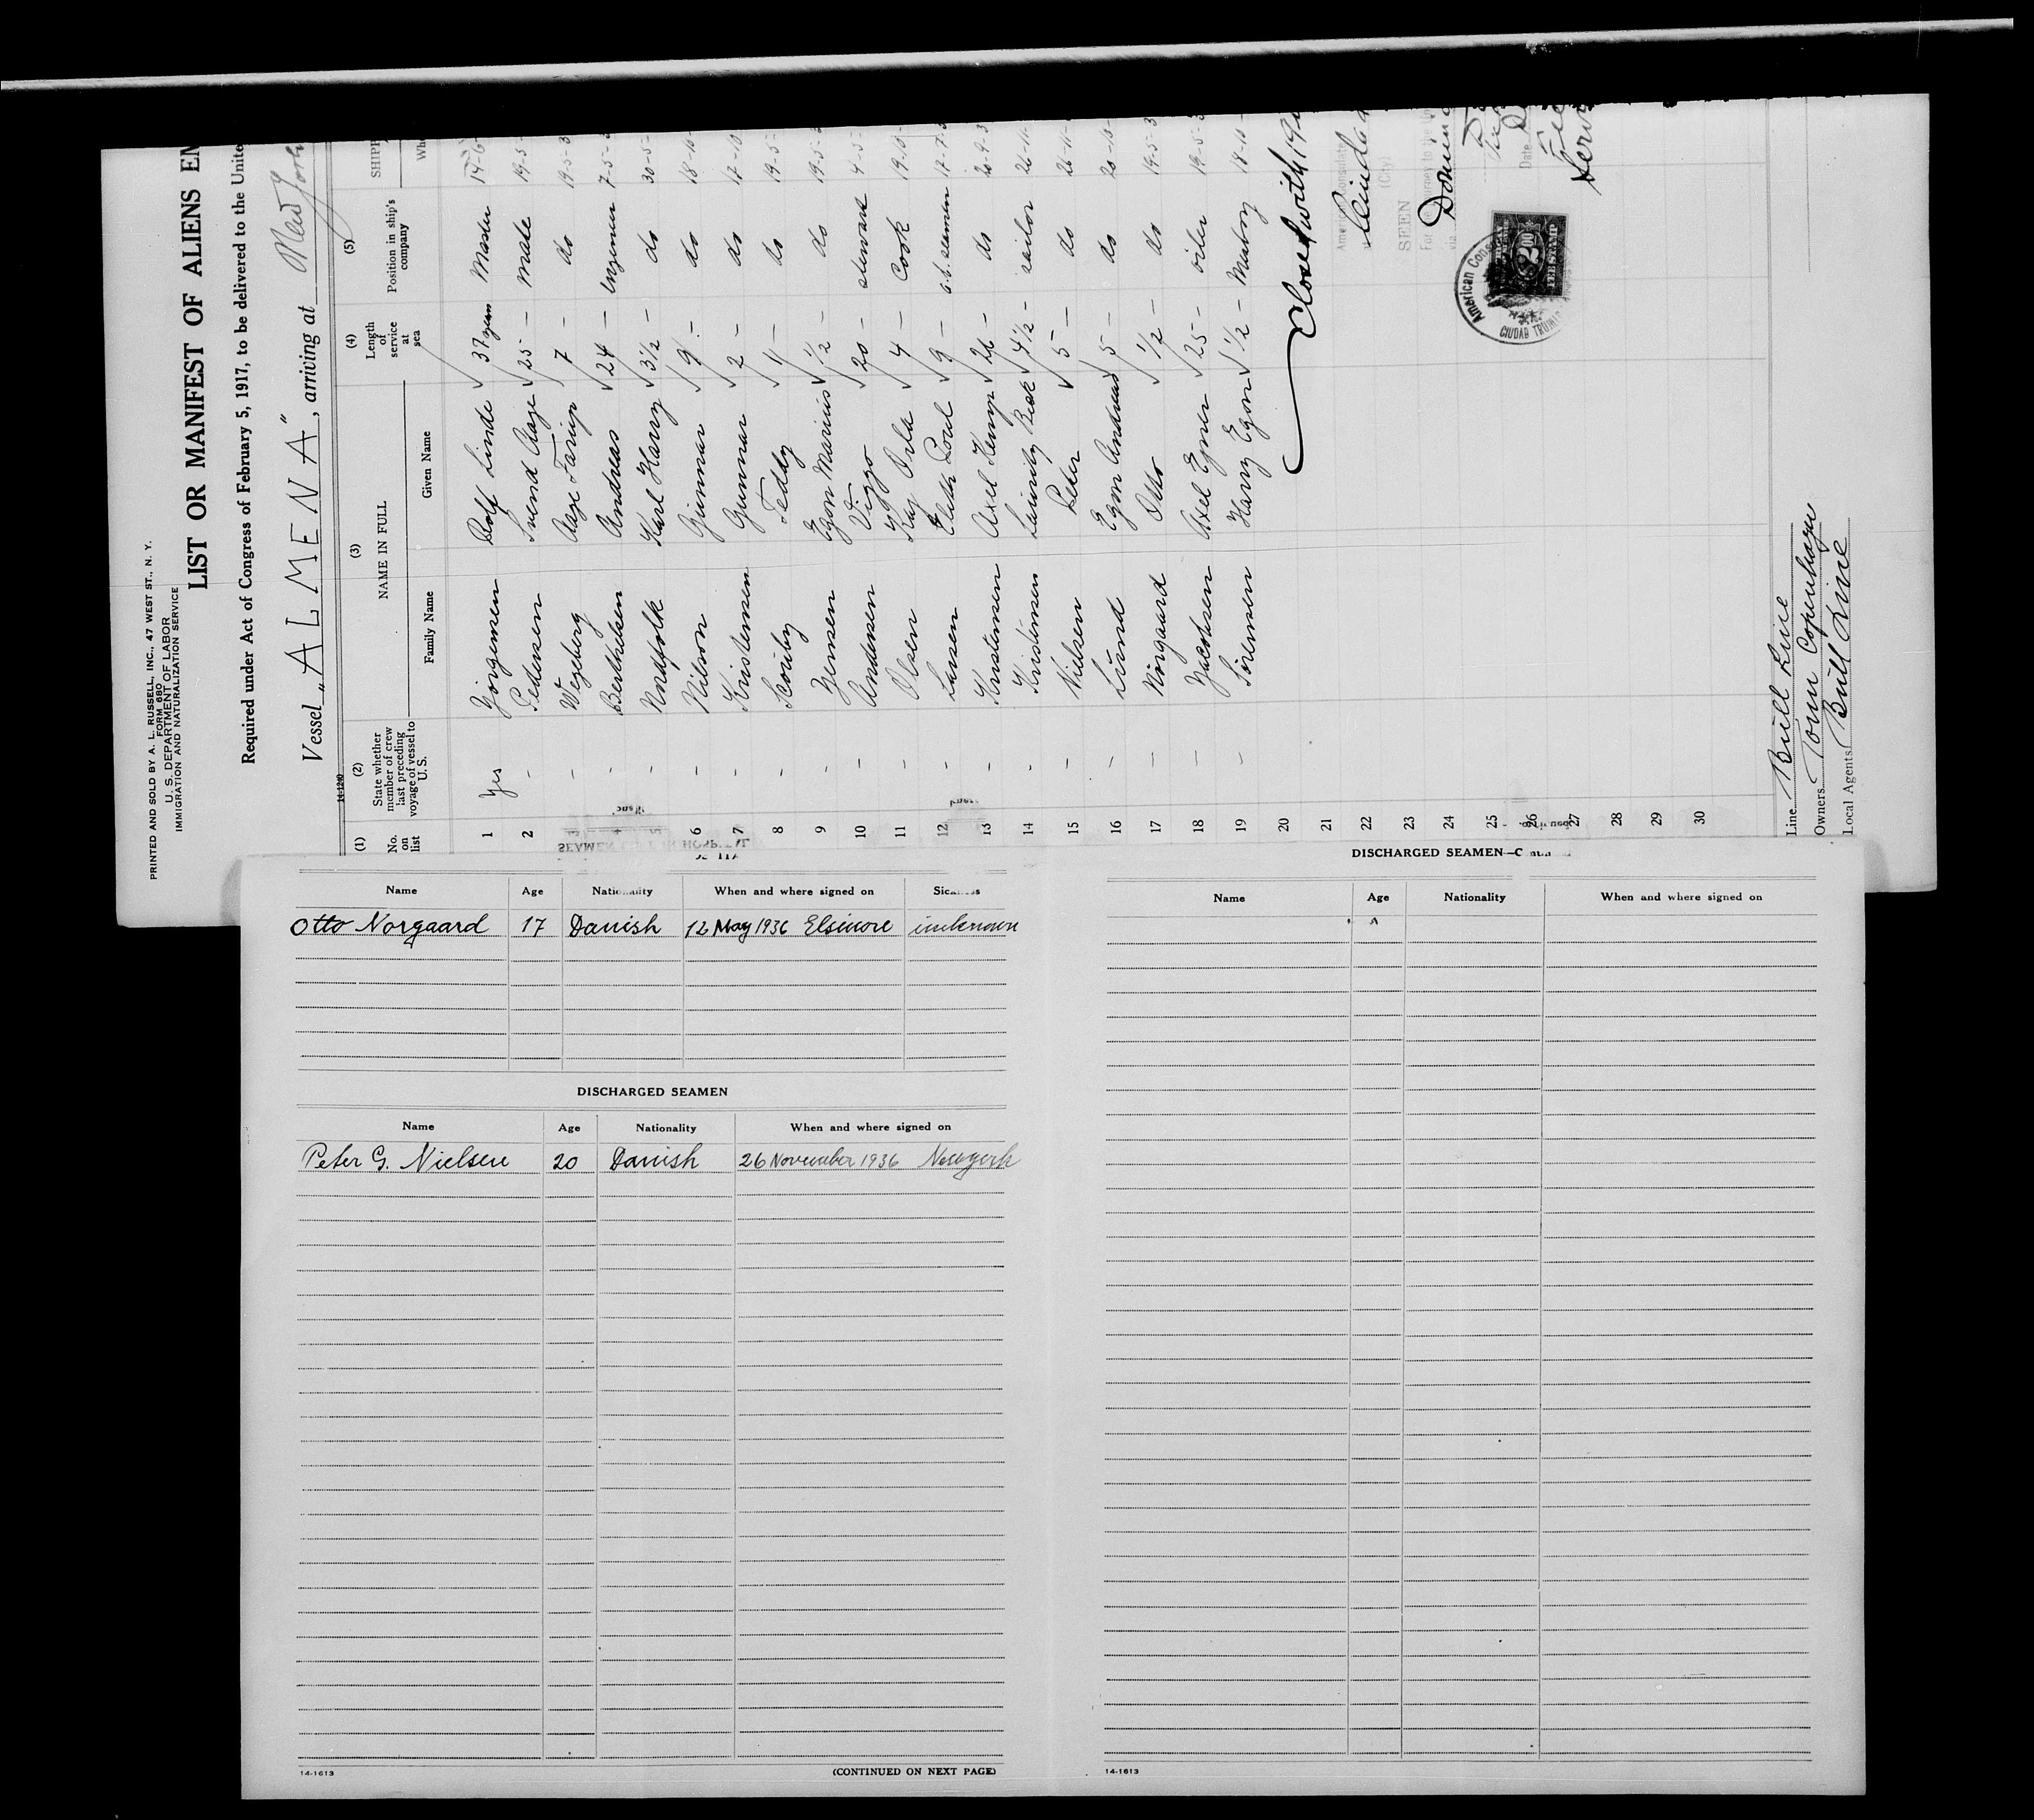 PRINTED AND SOLD BY A. L. RUSSELL, INC., 47 WEST ST., N. Y.
FORM 680
U. S. DEPARTMENT OF LABOR
IMMIGRATION AND NATURALIZATION SERVICE
LIST OR MANIFEST OF ALIENS EM
Required under Act of Congress of February 5, 1917, to be delivered to the Unite
Vessel "ALMENA", arriving at New York
14-1240
(1) (2) (3) (4) (5)
No. on list State whether member of crew last preceding voyage of vessel to U. S. NAME IN FULL Length of service at sea Position in ship's company SHIPP
Family Name Given Name Whe
1 Yes Jörgensen Rolf Linde 37 years Master 14-6-
2 - Pedersen Svend Aage 25 - mate 19-5-
3 - Wegeberg Aage Tarup 7 - do 19-5-3
4 - Berthelsen Andreas 24 - engineer 7-5-3
5 - Nordfolk Karl Harry 3½ - do 30-5-
6 - Nilson Gunnar 9 - do 18-10-
7 - Kristensen Gunnar 2 - do 17-10
8 - Scouby Teddy 1 - do 19-5-
9 - Jensen Egon Marius ½ - do 19-5-3
10 - Andersen Viggo 20 - steward 4-5-
11 - Olsen Kaj Orla 4 - Cook 19-10-
12 - Larsen Poul 9 - a.b. seaman 17-7-3
13 - Kristensen Axel Kemp 26 - do 20-9-3
14 - Kristensen Lauritz Beck 4½ - sailor 26-11-
15 - Nielsen Peter 5 - do 26-11-
16 - Lund Egon Andreas 5 - do 20-10-
17 - Nörgaard Otto ½ - do 19-5-3
18 - Jacobsen Axel Ejner 25 - oiler 19-5-3
19 - Sörensen Harry Egon ½ - Messboy 18-10-
20 Closed with 19
21
22 American Consulate
Ciudad
(City)
23 SEEN
24 For journey to the Un
via
25
26 Date
27
28
29
30
American Cons
CIUDAD TRUJILLO
$2.00
FEE STAMP
Line Bull Line
Owners Tom Copenhagen
Local Agents Bull Line
SEAMEN LEFT IN HOSPITAL
Name Age Nationality When and where signed on Sickness
Otto Norgaard 17 Danish 12 May 1936 Elsinore unknown
DISCHARGED SEAMEN
Name Age Nationality When and where signed on
Peter G. Nielsen 20 Danish 26 November 1936 Newyork
14-1613 (CONTINUED ON NEXT PAGE)
DISCHARGED SEAMEN—Continued
Name Age Nationality When and where signed on
14-1613